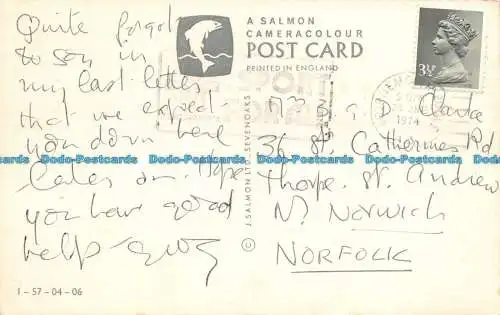 Quite forgot
to say in
my last letter
that we expect
you down here
Later on. Hope
you have good
help
A SALMON
CAMERACOLOUR
POST CARD
PRINTED IN ENGLAND
J. SALMON LTD., SEVENOAKS ©
3½P
1974
D. Clarke
36 St. Catherines Rd
Thorpe St. Andrew
Nr. NORWICH
NORFOLK
1-57-04-06
Dodo-Postcards Dodo-Postcards Dodo-Postcards Dodo-Postcards Dodo-Postcards
Dodo-Postcards Dodo-Postcards Dodo-Postcards Dodo-Postcards Dodo-Postcards